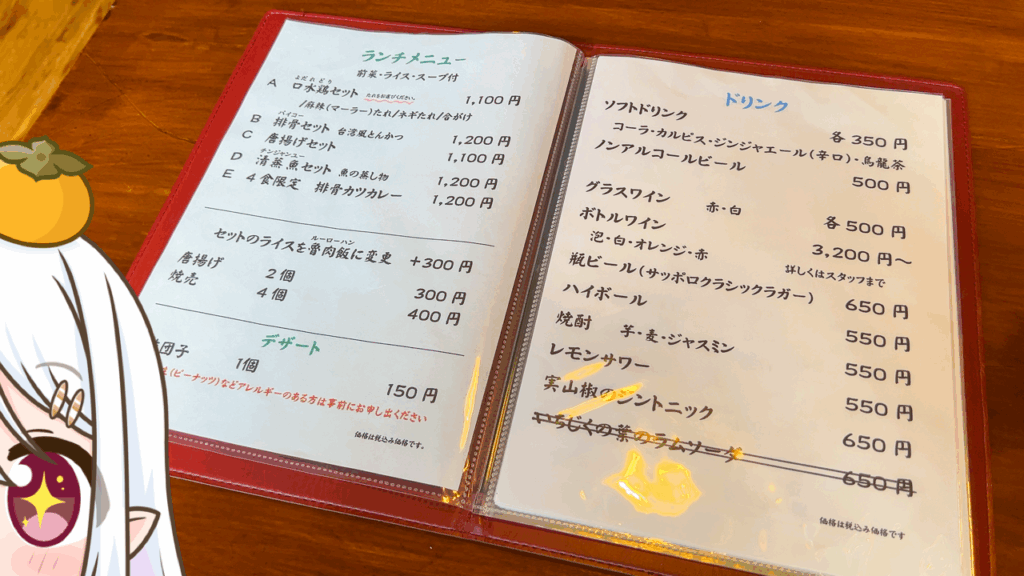 ランチメニュー
前菜・ライス・スープ付
よだれどり
A 口水鶏セット たれをお選びください。 1,100円
/麻辣(マーラー)たれ/ネギたれ/合がけ
パイコー
B 排骨セット 台湾風とんかつ 1,200円
C 唐揚げセット 1,100円
チンジャンユー
D 清蒸魚セット 魚の蒸し物 1,200円
E 4食限定 排骨カツカレー 1,200円
ルーローハン
セットのライスを魯肉飯に変更 +300円
唐揚げ 2個 300円
焼売 4個 400円
デザート
団子 1個 150円
(ピーナッツ)などアレルギーのある方は事前にお申し出ください
価格は税込み価格です。
ドリンク
ソフトドリンク 各350円
コーラ・カルピス・ジンジャエール(辛口)・烏龍茶
ノンアルコールビール 500円
グラスワイン 赤・白 各500円
ボトルワイン 3,200円〜
泡・白・オレンジ・赤 詳しくはスタッフまで
瓶ビール(サッポロクラシックラガー) 650円
ハイボール 550円
焼酎 芋・麦・ジャスミン 550円
レモンサワー 550円
実山椒のジントニック 650円
いちじくの葉のラムソーダ 650円
価格は税込み価格です